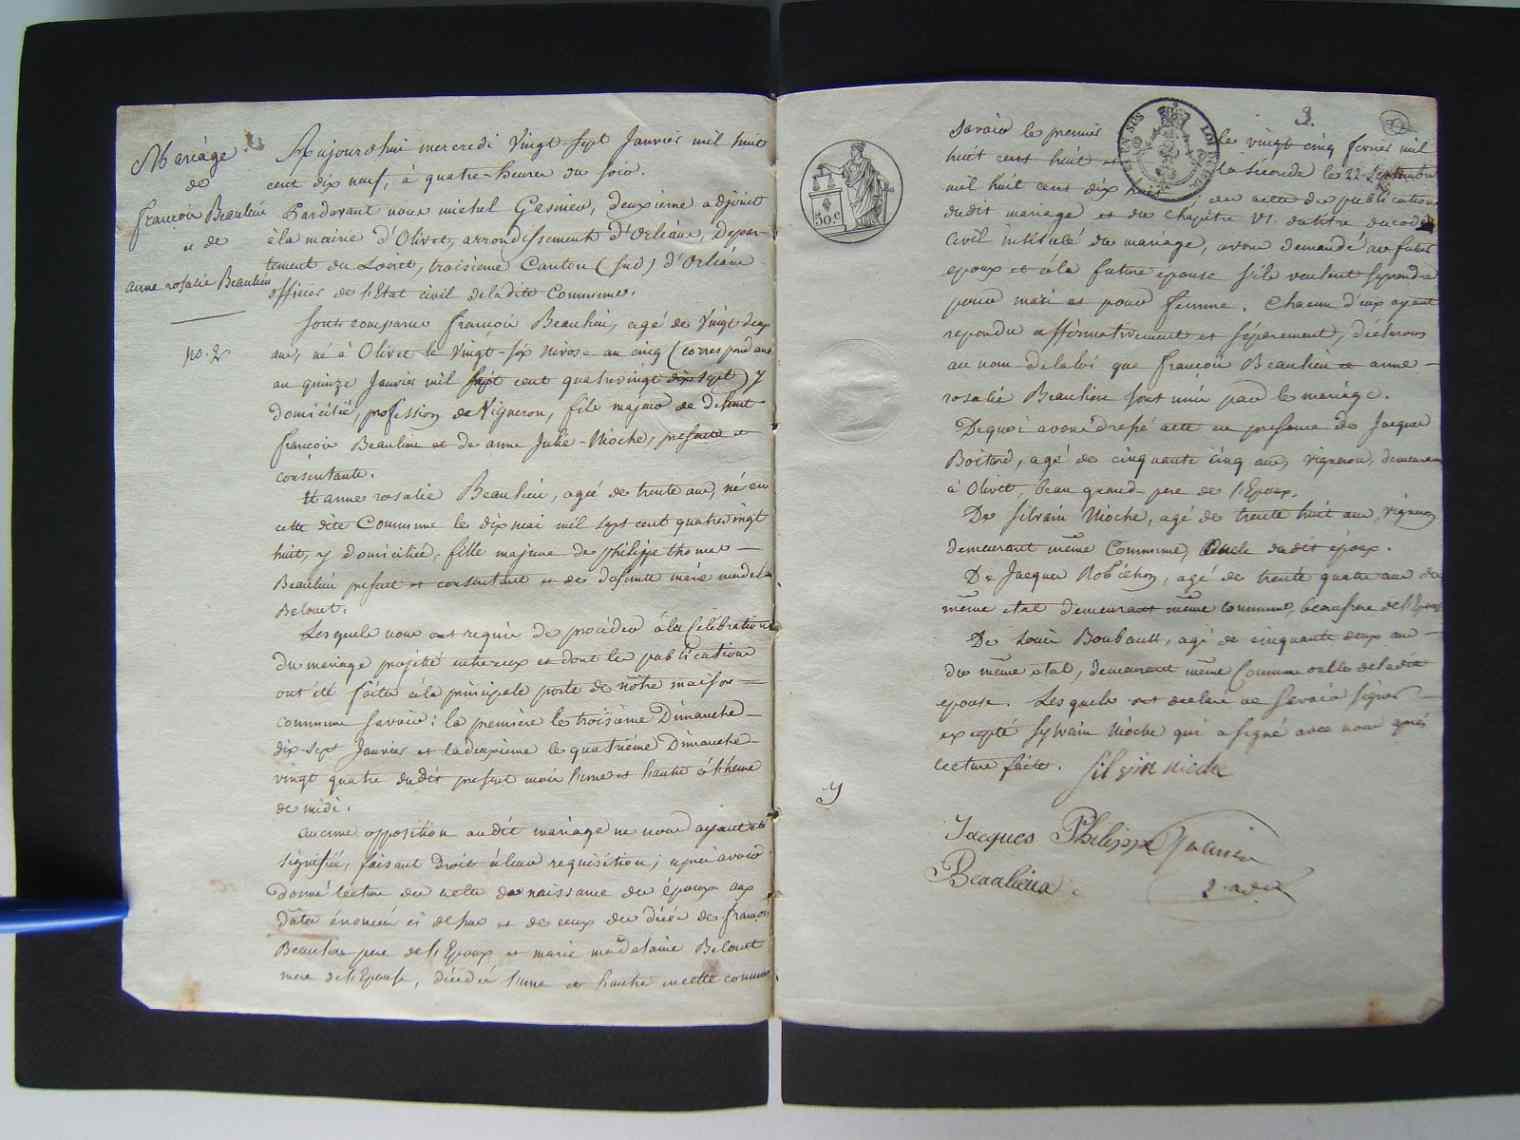 Mariage
de
françois Beaulieu
et de
anne rosalie Beaulieu
no. 2
Aujourdhui mercredi vingt-sept Janvier mil huit
cent dix neuf, à quatre heures du soir.
Pardevant nous michel Gasnier, deuxieme adjoint
à la mairie d'Olivet, arrondissement d'Orléans, Depar-
tement du Loiret, troisieme Canton (sud) d'Orléans
officier de l'Etat civil de ladite Commune.
Sont comparus françois Beaulieu, agé de vingt deux
ans, né à Olivet le vingt-six nivose an cinq (correspondant
au quinze Janvier mil sept cent quatrevingt dix sept) y
domicilié, profession de Vigneron, fils majeur de defunt
françois Beaulieu et de anne Julie Nioche, presente et
consentante.
Et anne rosalie Beaulieu, agée de trente ans, née en
cette dite Commune le dix mai mil sept cent quatrevingt
huit, y domiciliée, fille majeure de philippe thomas
Beaulieu present et consentant et de defunte marie madelaine
Belouet.
Lesquels nous ont requis de proceder à la célébration
du mariage projetté entre eux et dont les publications
ont été faites à la principale porte de nôtre maison
commune savoir: la première le troisième Dimanche
dix-sept Janvier et la deuxieme le quatrième Dimanche
vingt quatre dudit present mois l'une et l'autre à l'heure
de midi.
aucune opposition audit mariage ne nous ayant été
signifiée, faisant droit à leur requisition; après avoir
donné lecture des actes de naissance des époux aux
dates énoncées ci dessus et de ceux du décès de françois
Beaulieu pere de l'Epoux et marie madelaine Belouet
mere de l'Epouse, décédés l'une et l'autre en cette commune
3.
savoir le premier le vingt cinq fevrier mil
huit cent huit et la seconde le 22 septembre
mil huit cent dix huit, des actes de publications
dudit mariage et du chapitre VI. du titre du code
Civil intitulé du mariage, avons demandé au futur
epoux et à la future epouse s'ils veulent se prendre
pour mari et pour femme. Chacun d'eux ayant
repondu affirmativement et séparement, déclarons
au nom de la loi que françois Beaulieu et anne
rosalie Beaulieu sont unis par le mariage.
De quoi avons dressé acte en presence de Jacques
Boitard, agé de cinquante cinq ans, vigneron, demeurant
à Olivet, beau grand-pere de l'Epoux.
De Silvain Nioche, agé de trente huit ans, vigneron
demeurant même Commune, Oncle dudit époux.
De Jacques Robichon, agé de trente quatre ans du
même etat demeurant même commune, beaufrere de l'Epoux
De Louis Boubault, agé de cinquante deux ans
du même etat, demeurant même Commune oncle de ladite
epouse. Lesquels ont declaré ne savoir signer
excepté Sylvain Nioche qui a signé avec nous après
lecture faite. Silvin nioche
Jacques Philippe Gasnier
Beaulieu 2. adj
50.c